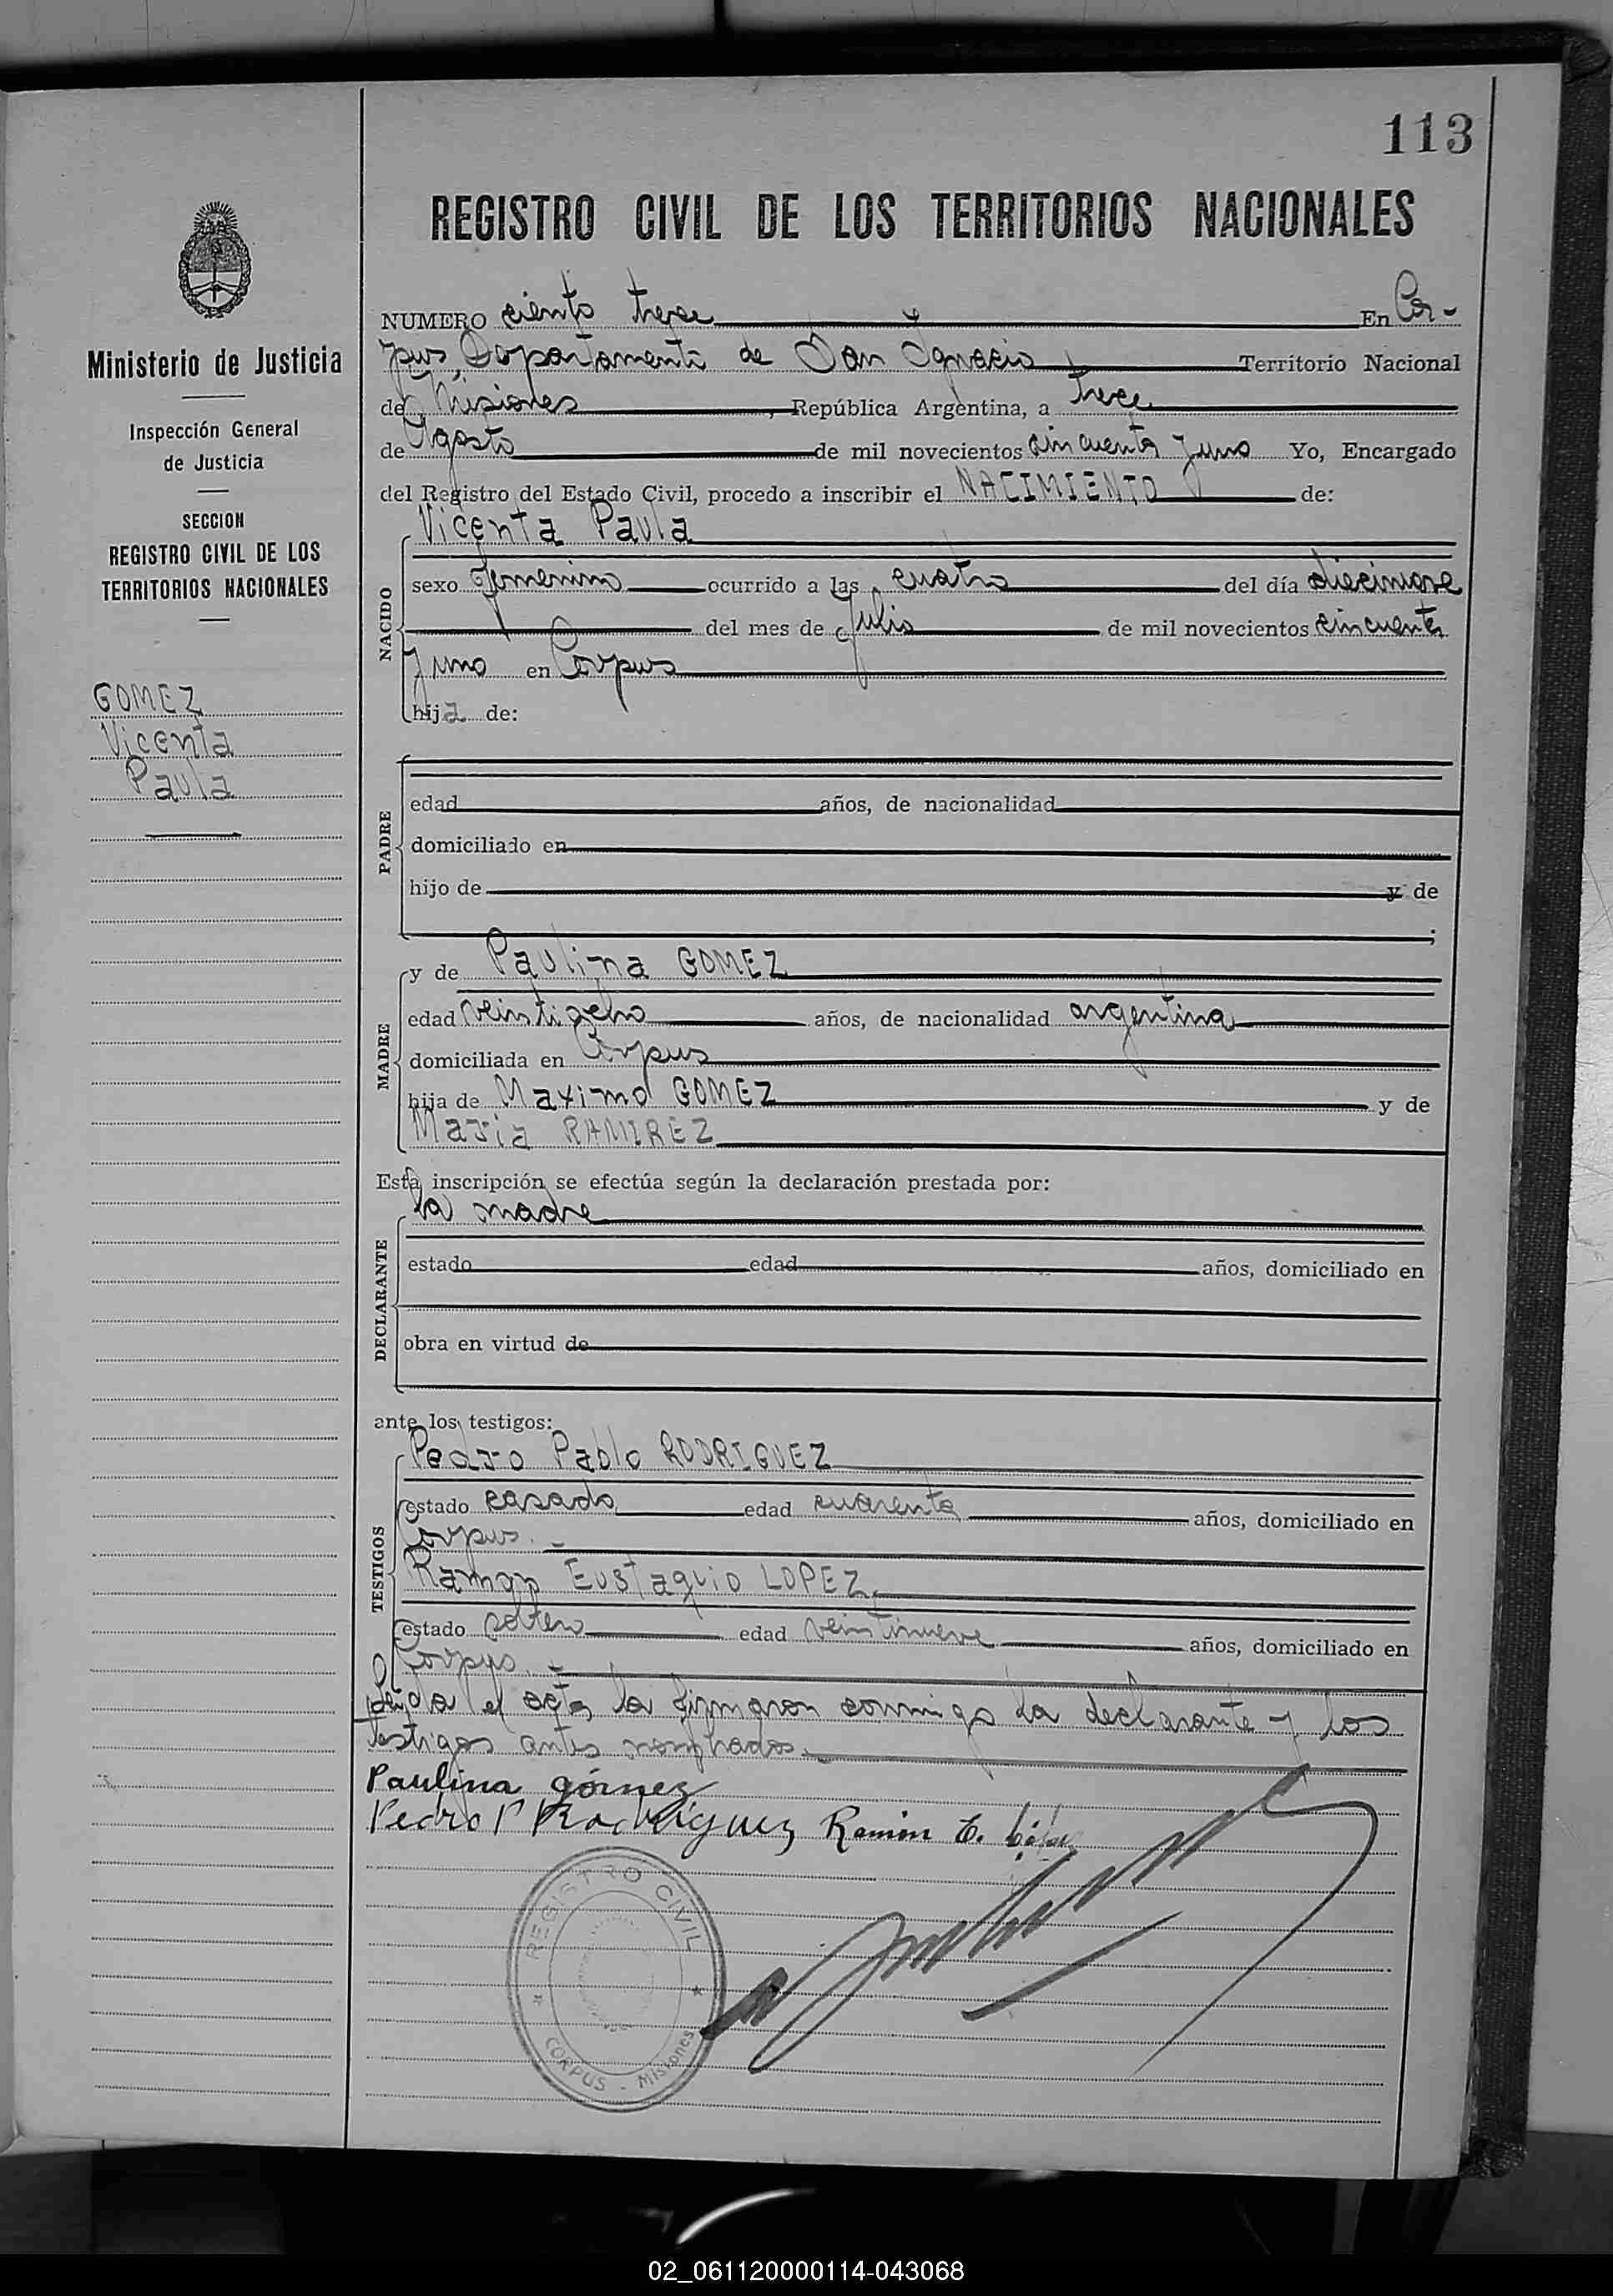 113
REGISTRO CIVIL DE LOS TERRITORIOS NACIONALES
Ministerio de Justicia
Inspección General
de Justicia
SECCION
REGISTRO CIVIL DE LOS
TERRITORIOS NACIONALES
GOMEZ
Vicenta
Paula
NUMERO ciento trece En Cor-
pus, Departamento de San Ignacio Territorio Nacional
de Misiones, República Argentina, a trece
de Agosto de mil novecientos cincuenta y uno Yo, Encargado
del Registro del Estado Civil, procedo a inscribir el NACIMIENTO de:
NACIDO
Vicenta Paula
sexo femenino ocurrido a las cuatro del día diecinueve
del mes de Julio de mil novecientos cincuenta
y uno en Corpus
hija de:
PADRE
edad años, de nacionalidad
domiciliado en
hijo de y de
;
MADRE
y de Paulina GOMEZ
edad veintiocho años, de nacionalidad argentina
domiciliada en Corpus
hija de Maximo GOMEZ y de
Maria RAMIREZ
Esta inscripción se efectúa según la declaración prestada por:
DECLARANTE
la madre
estado edad años, domiciliado en
obra en virtud de
ante los testigos:
TESTIGOS
Pedro Pablo RODRIGUEZ
estado casado edad cuarenta años, domiciliado en
Corpus.-
Ramon Eustaquio LOPEZ
estado soltero edad veintinueve años, domiciliado en
Corpus.-
Leida el acta, la firmaron conmigo la declarante y los
testigos antes nombrados.-
Paulina gómez
Pedro P Rodriguez Ramón E. López
REGISTRO CIVIL
CORPUS - Misiones
02_061120000114-043068